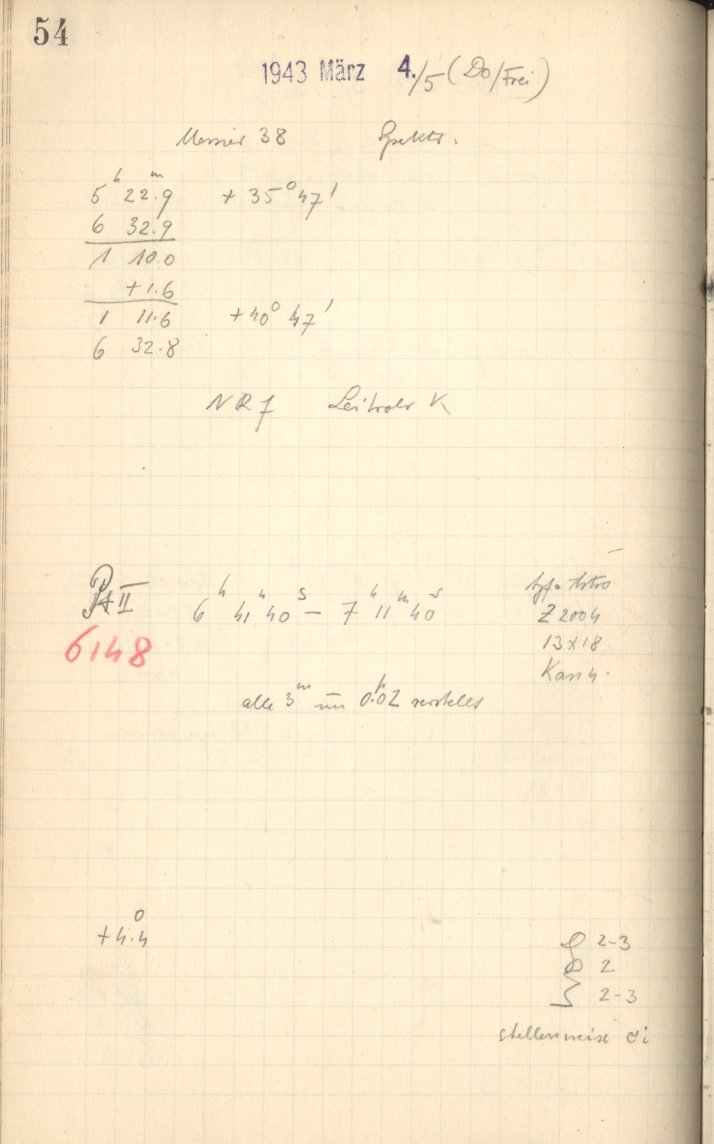 54
1943 März 4./5 (Do/Frei)
Messier 38 Spektr.
5h 22m.9 + 35° 47'
6 32.9
1 10.0
+ 1.6
1 11.6 + 40° 47'
6 32.8
NR 7 K
II 6h 41 40s – 7h 11m 40s Agfa Astro
6148 Z 2004
13 x 18
alle 3m um 0.02 verstellt
+ 4.4°
2-3
2
2-3
stellenweise ci